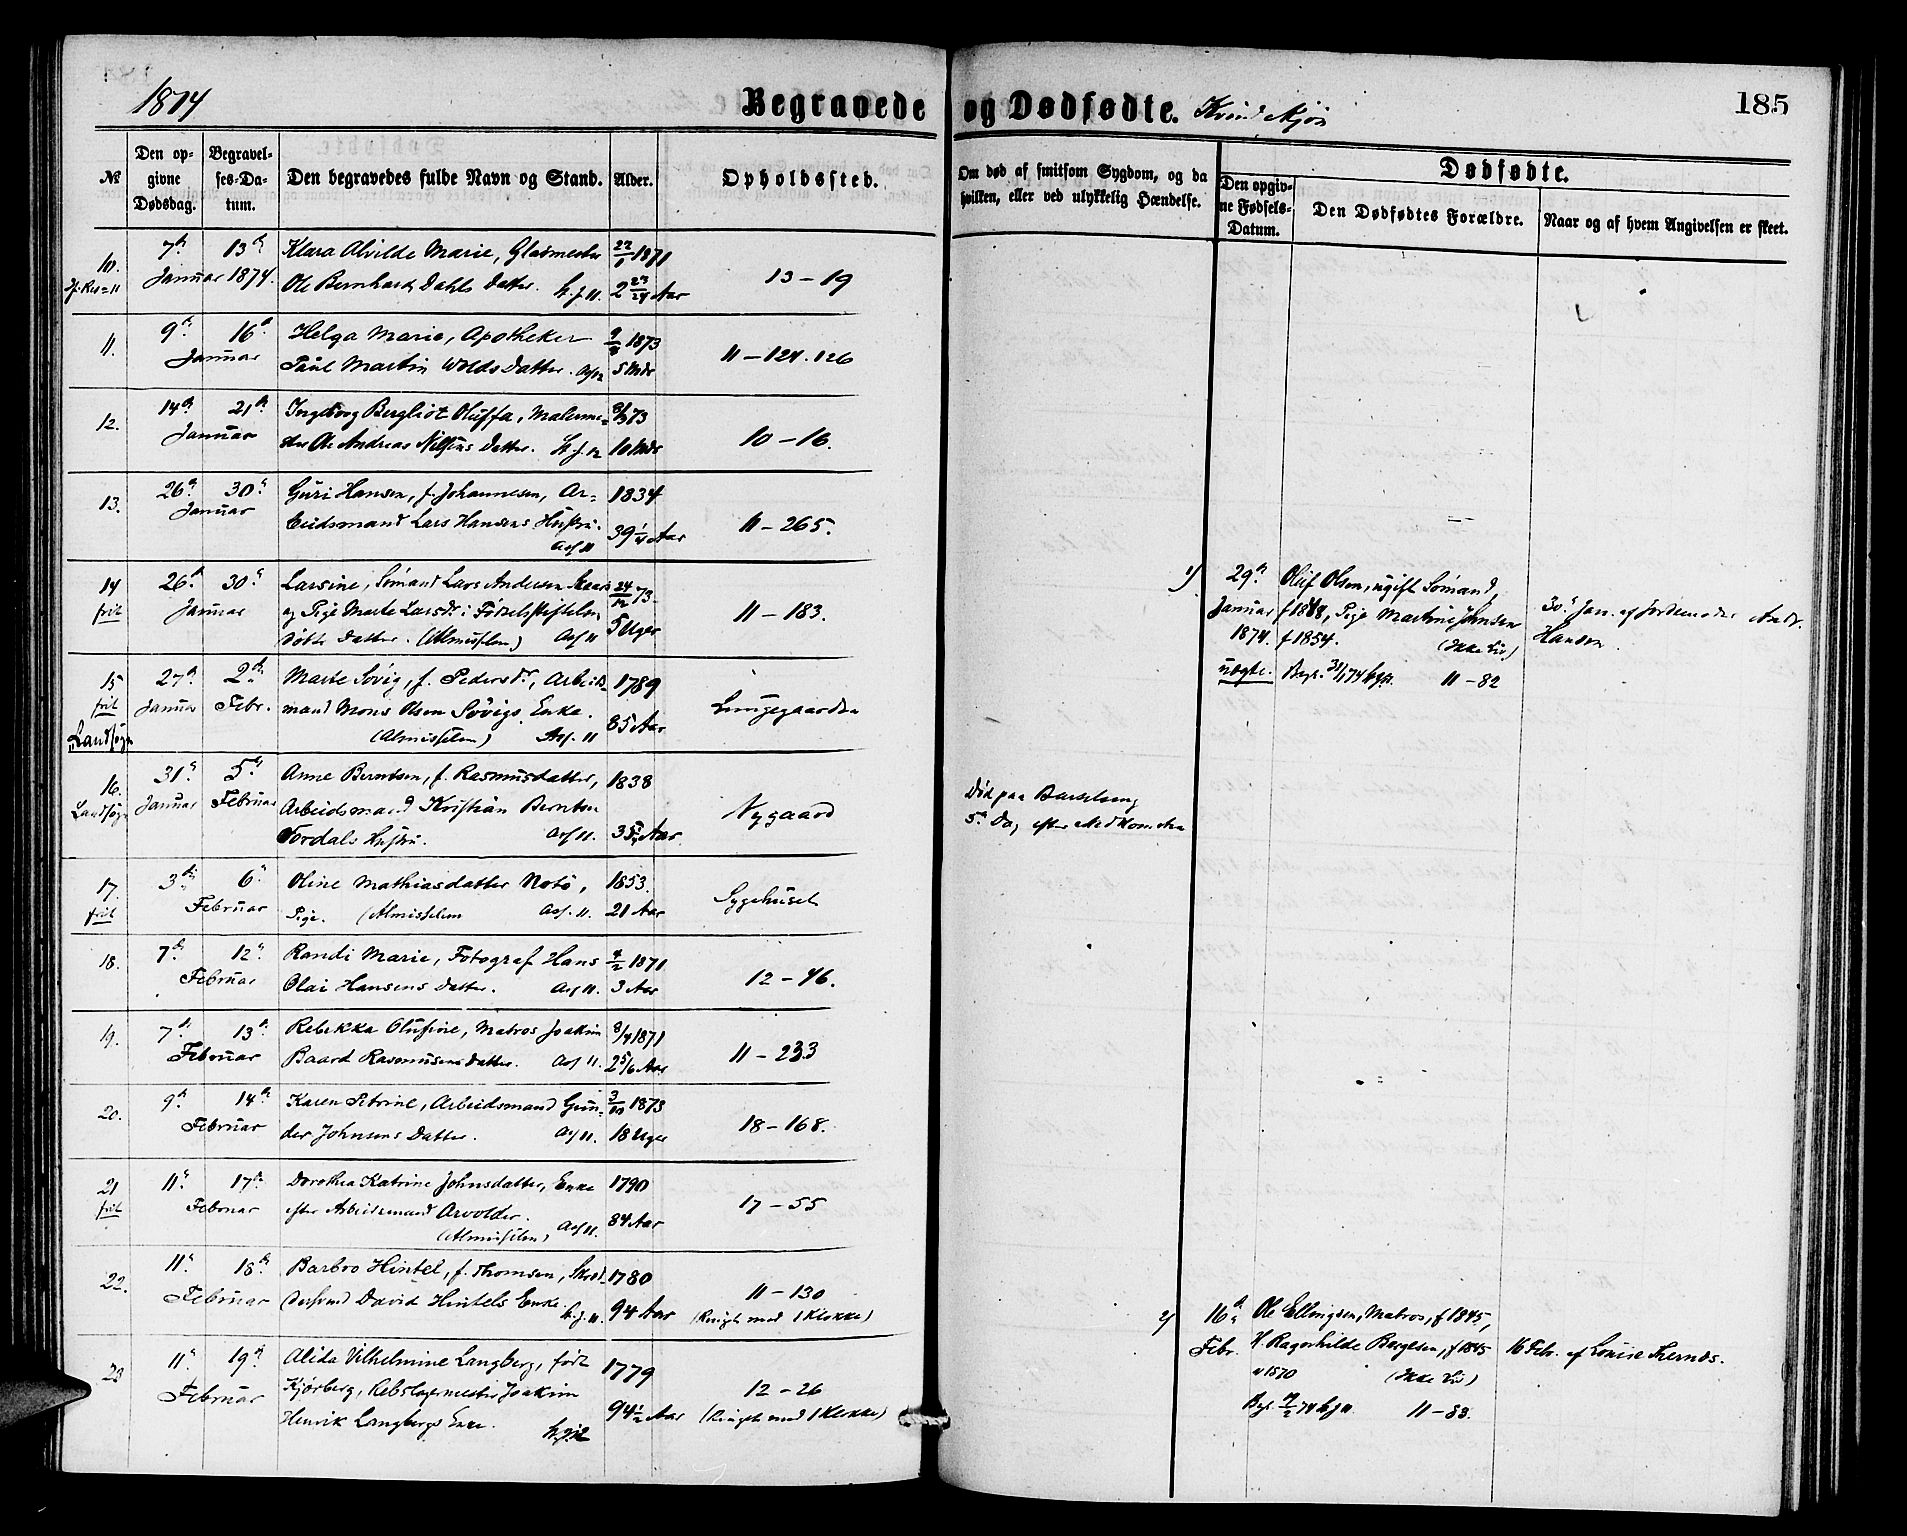 1874 Begravede og Dødfødte. Kvindekjøn 185
№ Den opgivne Dødsdag. Begravelses-Datum. Den begravedes fulde Navn og Stand. Alder. Opholdssted.
Om død af smitsom Sygdom, og da hvilken, eller ved ulykkelig Hændelse.
Dødfødte.
Den opgivne Fødsels-Datum. Den Dødfødtes Forældre. Naar og af hvem Angivelsen er skeet.
10. 7de 13de Klara Alvilde Marie, Glasmester 22/1 1871
Januar 1874. Ole Bernhard Dahls Datter. 2 23/24 Aar 13-19
11. 9de 16de Helga Marie, Apotheker 9/8 1873
Januar Paul Martin Wolds Datter. 5 Mdr 11-124.126
12. 14de 21de Ingeborg Bergliot Oluffa, Malerme-
Januar ster Ole Andreas Nilsens Datter. 10 Mdr 10-16.
13. 26de 30te Guri Hansen, f. Johannesen, Ar- 1834
Januar beidsmand Lars Hansens Hustru. 39 1/4 Aar 11-265.
Ass 11
14 26de 30te Larsine, Sømand Lars Andersen 24/12 73
frit Januar og Pige Marte Larsdr i Fødselsstiftelsen 11-183.
døbte Datter. (Almisselem) Ass 11 5 Uger
15 27de 2den Marte Søvig, f. Pedersdr, Arbeids- 1789
frit Januar Febr. mand Mons Olsen Søvigs Enke. Lungegaarden
Landsogn (Almisselem) Ass. 11 85 Aar
16. 31te 5te Anne Berntsen, f. Rasmusdatter, 1838
Landsogn Januar Februar Arbeidsmand Kristian Berntsen Nygaard
Tordals Hustru. Ass 11. 35 Aar
Død paa Barselseng
5te Dag efter Nedkomsten
17. 3die 6te Oline Mathiasdatter Notø, 1853.
frit Februar Pige. (Almisselem Ass. 11. 21 Aar Sygehuset
18. 7de 12te Randi Marie, Fotograf Hans 4/2 1871
Februar Olai Hansens Datter. Ass 11. 3 Aar 12-46.
19. 7de 13de Rebekka Olufine, Matros Joakim 8/4 1871
Februar Baard Rasmusens Datter. Ass 11. 2 5/6 Aar 11-233
20. 9de 14de Karen Petrine, Arbeidsmand Gun- 3/10 1873
Februar der Johnsens Datter. Ass 11. 18 Uger 18-168.
21 11te 17de Dorothea Katrine Johnsdatter, Enke 1790
frit Februar efter Arbeidsmand Arvolder. 17-55
(Almisselem) Ass 11. 84 Aar
22. 11te 18de Barbro Hintel, f. Thomsen, Skræd- 1780
Februar dersvend David Hintels Enke. 94 Aar 11-130
(Ringt med 1 Klokke)
23 11te 19de Alida Vilhelmine Langberg, født 1779
Februar Kjørberg, Rebslagermester Joakim 12-26
Henrik Langbergs Enke. 94 1/2 Aar (Ringt med 1 Klokke)
1) 29de Oluf Olsen, ugift Sømand,
Januar f 1848, Pige Martine Johnsen 30te Jan. af Jordemoder Andr.
1874. f 1854. (Ikke Liv) Hansen.
uægte. Begr. 31/1 74 11-82
2) 16de Ole Ellingsen, Matros, f 1845,
Febr. H. Ragnhilde Børgesen, f 1845 16 Febr. af Louise Thernæs.
v 1870 (Ikke Liv)
Begr. 11-83.